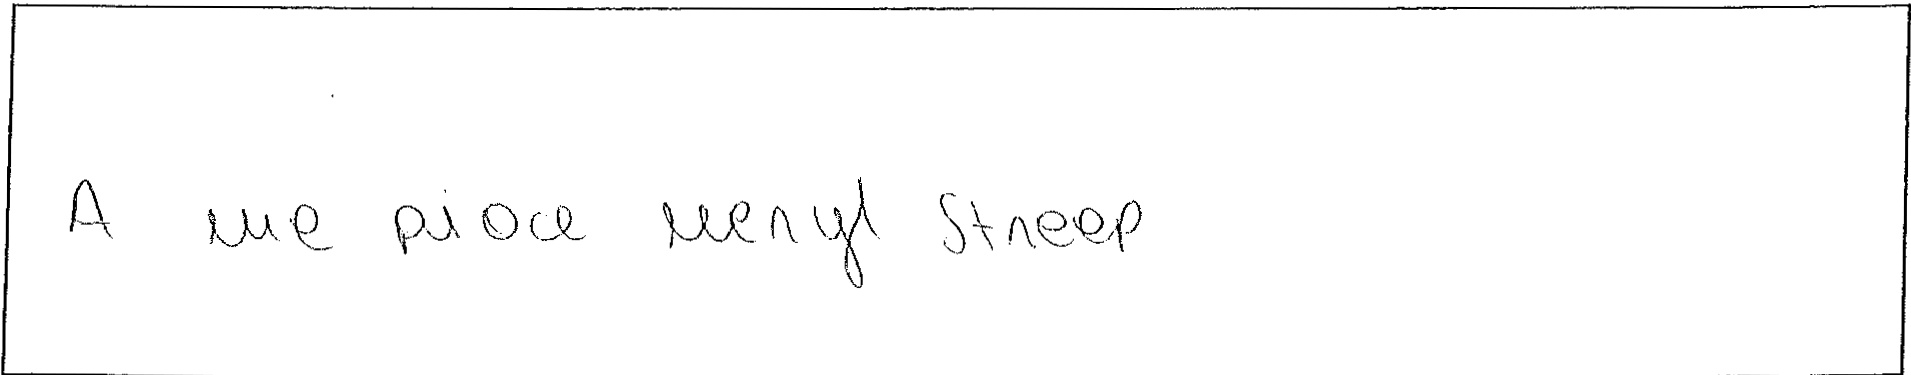 A me piace Meryl Streep